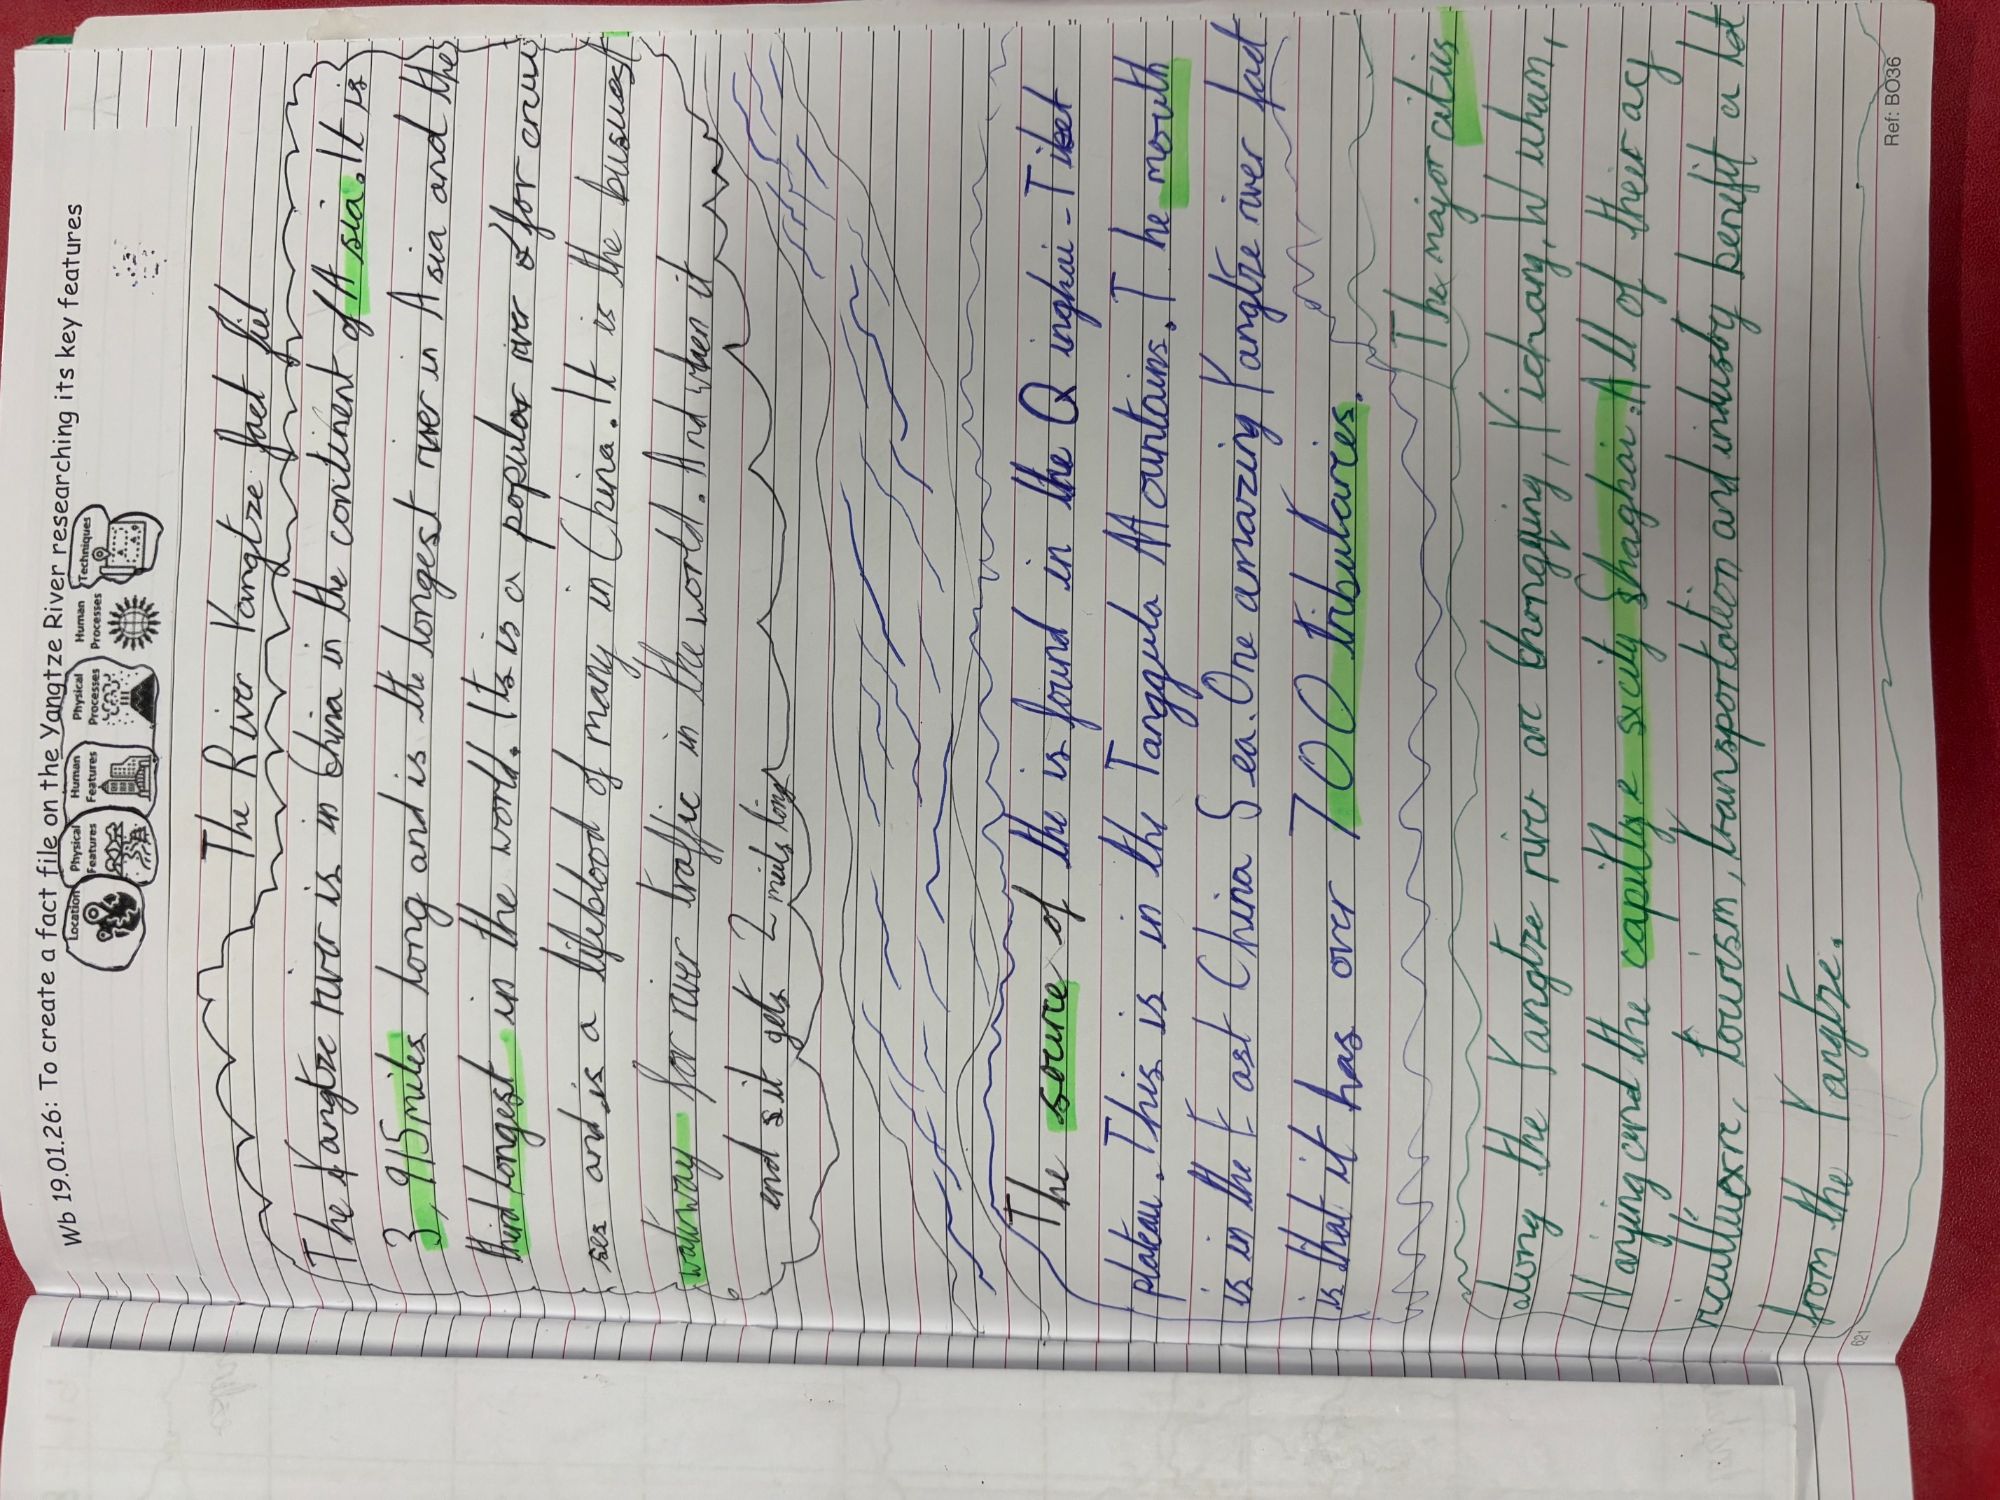 Wb 19.01.26: To create a fact file on the Yangtze River researching its key features
Location
Physical Features
Human Features
Physical Processes
Human Processes
Techniques
The River Yangtze fact fiel
The Yangtze river is in China in the continent of Asia. It is
3,915miles long and is the longest river in Asia and the
third longest in the world. Its is a popular river for crui
ses and is a lifeblood of many in China. It is the busuest
waterway for river traffic in the world. And when it
end sit gets 2 miels long
The source of the is found in the Qinghai-Tibet
plateau. This is in the Tanggula Mountains. The mouth
is in the East China Sea. One amazing Yangtze river fact
is that it has over 700 tributaries.
The major citis
along the Yangtze river are thongqing, Yichang, Wuhan,
Nanjing and the capitlye sicity Shaghai. All of their ag
riculluexre, tourism, transportation and industry benefit a lot
from the Yangtze.
621
Ref: BO36